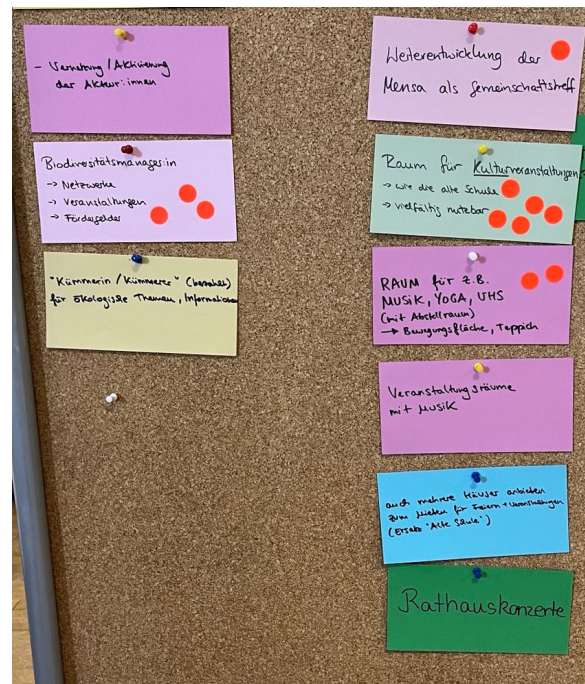 - Vernetzung / Aktivierung
der Akteur:innen
Biodiversitätsmanager:in
→ Netzwerke
→ Veranstaltungen
→ Fördergelder
"Kümmerin / Kümmerer" (bezahlt)
für ökologische Themen, Informationen
Weiterentwicklung der
Mensa als Gemeinschaftstreff
Raum für Kulturveranstaltungen
→ wie die alte Schule
→ vielfältig nutzbar
RAUM für z.B.
MUSIK, YOGA, VHS
(mit Abstellraum)
→ Bewegungsfläche, Teppich
Veranstaltungsräume
mit Musik
auch mehrere Häuser anbieten
zum Mieten für Feiern + Veranstaltungen
(Ersatz "Alte Schule")
Rathauskonzerte